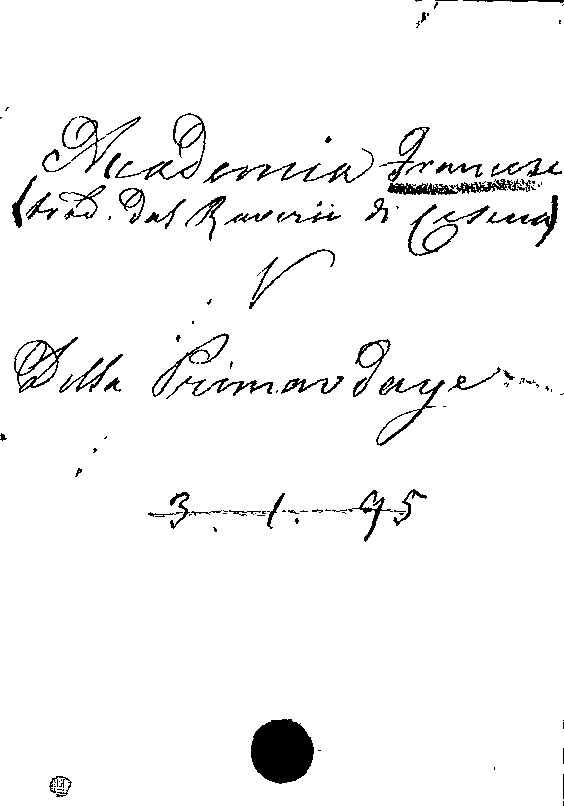 Accademia Francese
(trad. dal Raverii di Cesena)
V
Della Primavdaye
3. 1. 75